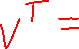 V^T =